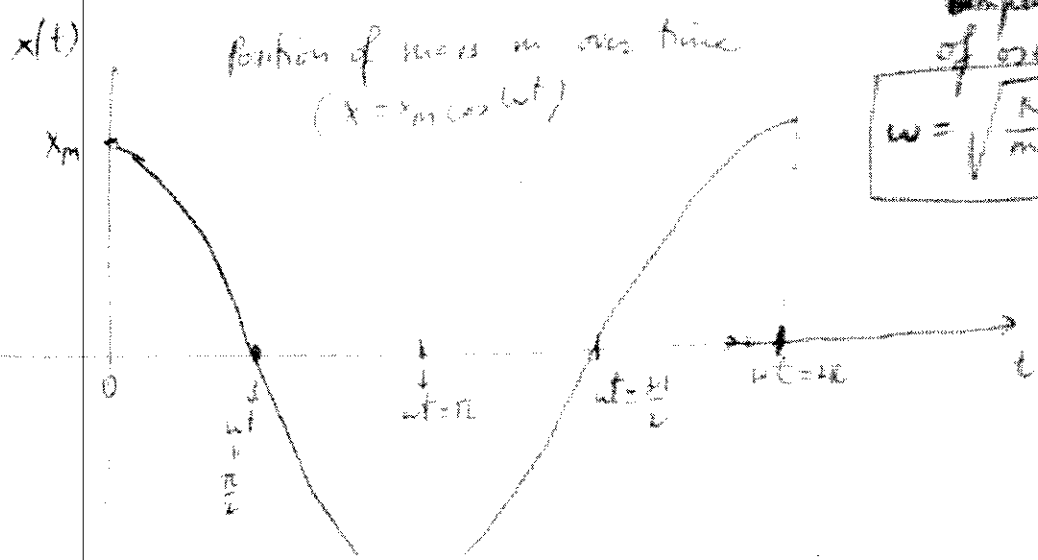 x(t)
Position of mass m over time
(x = xₘ cos ωt)
of
ω = √(k/m
xₘ
0
ωt = π/2
ωt = π
ωt = 3π/2
ωt = 2π
t